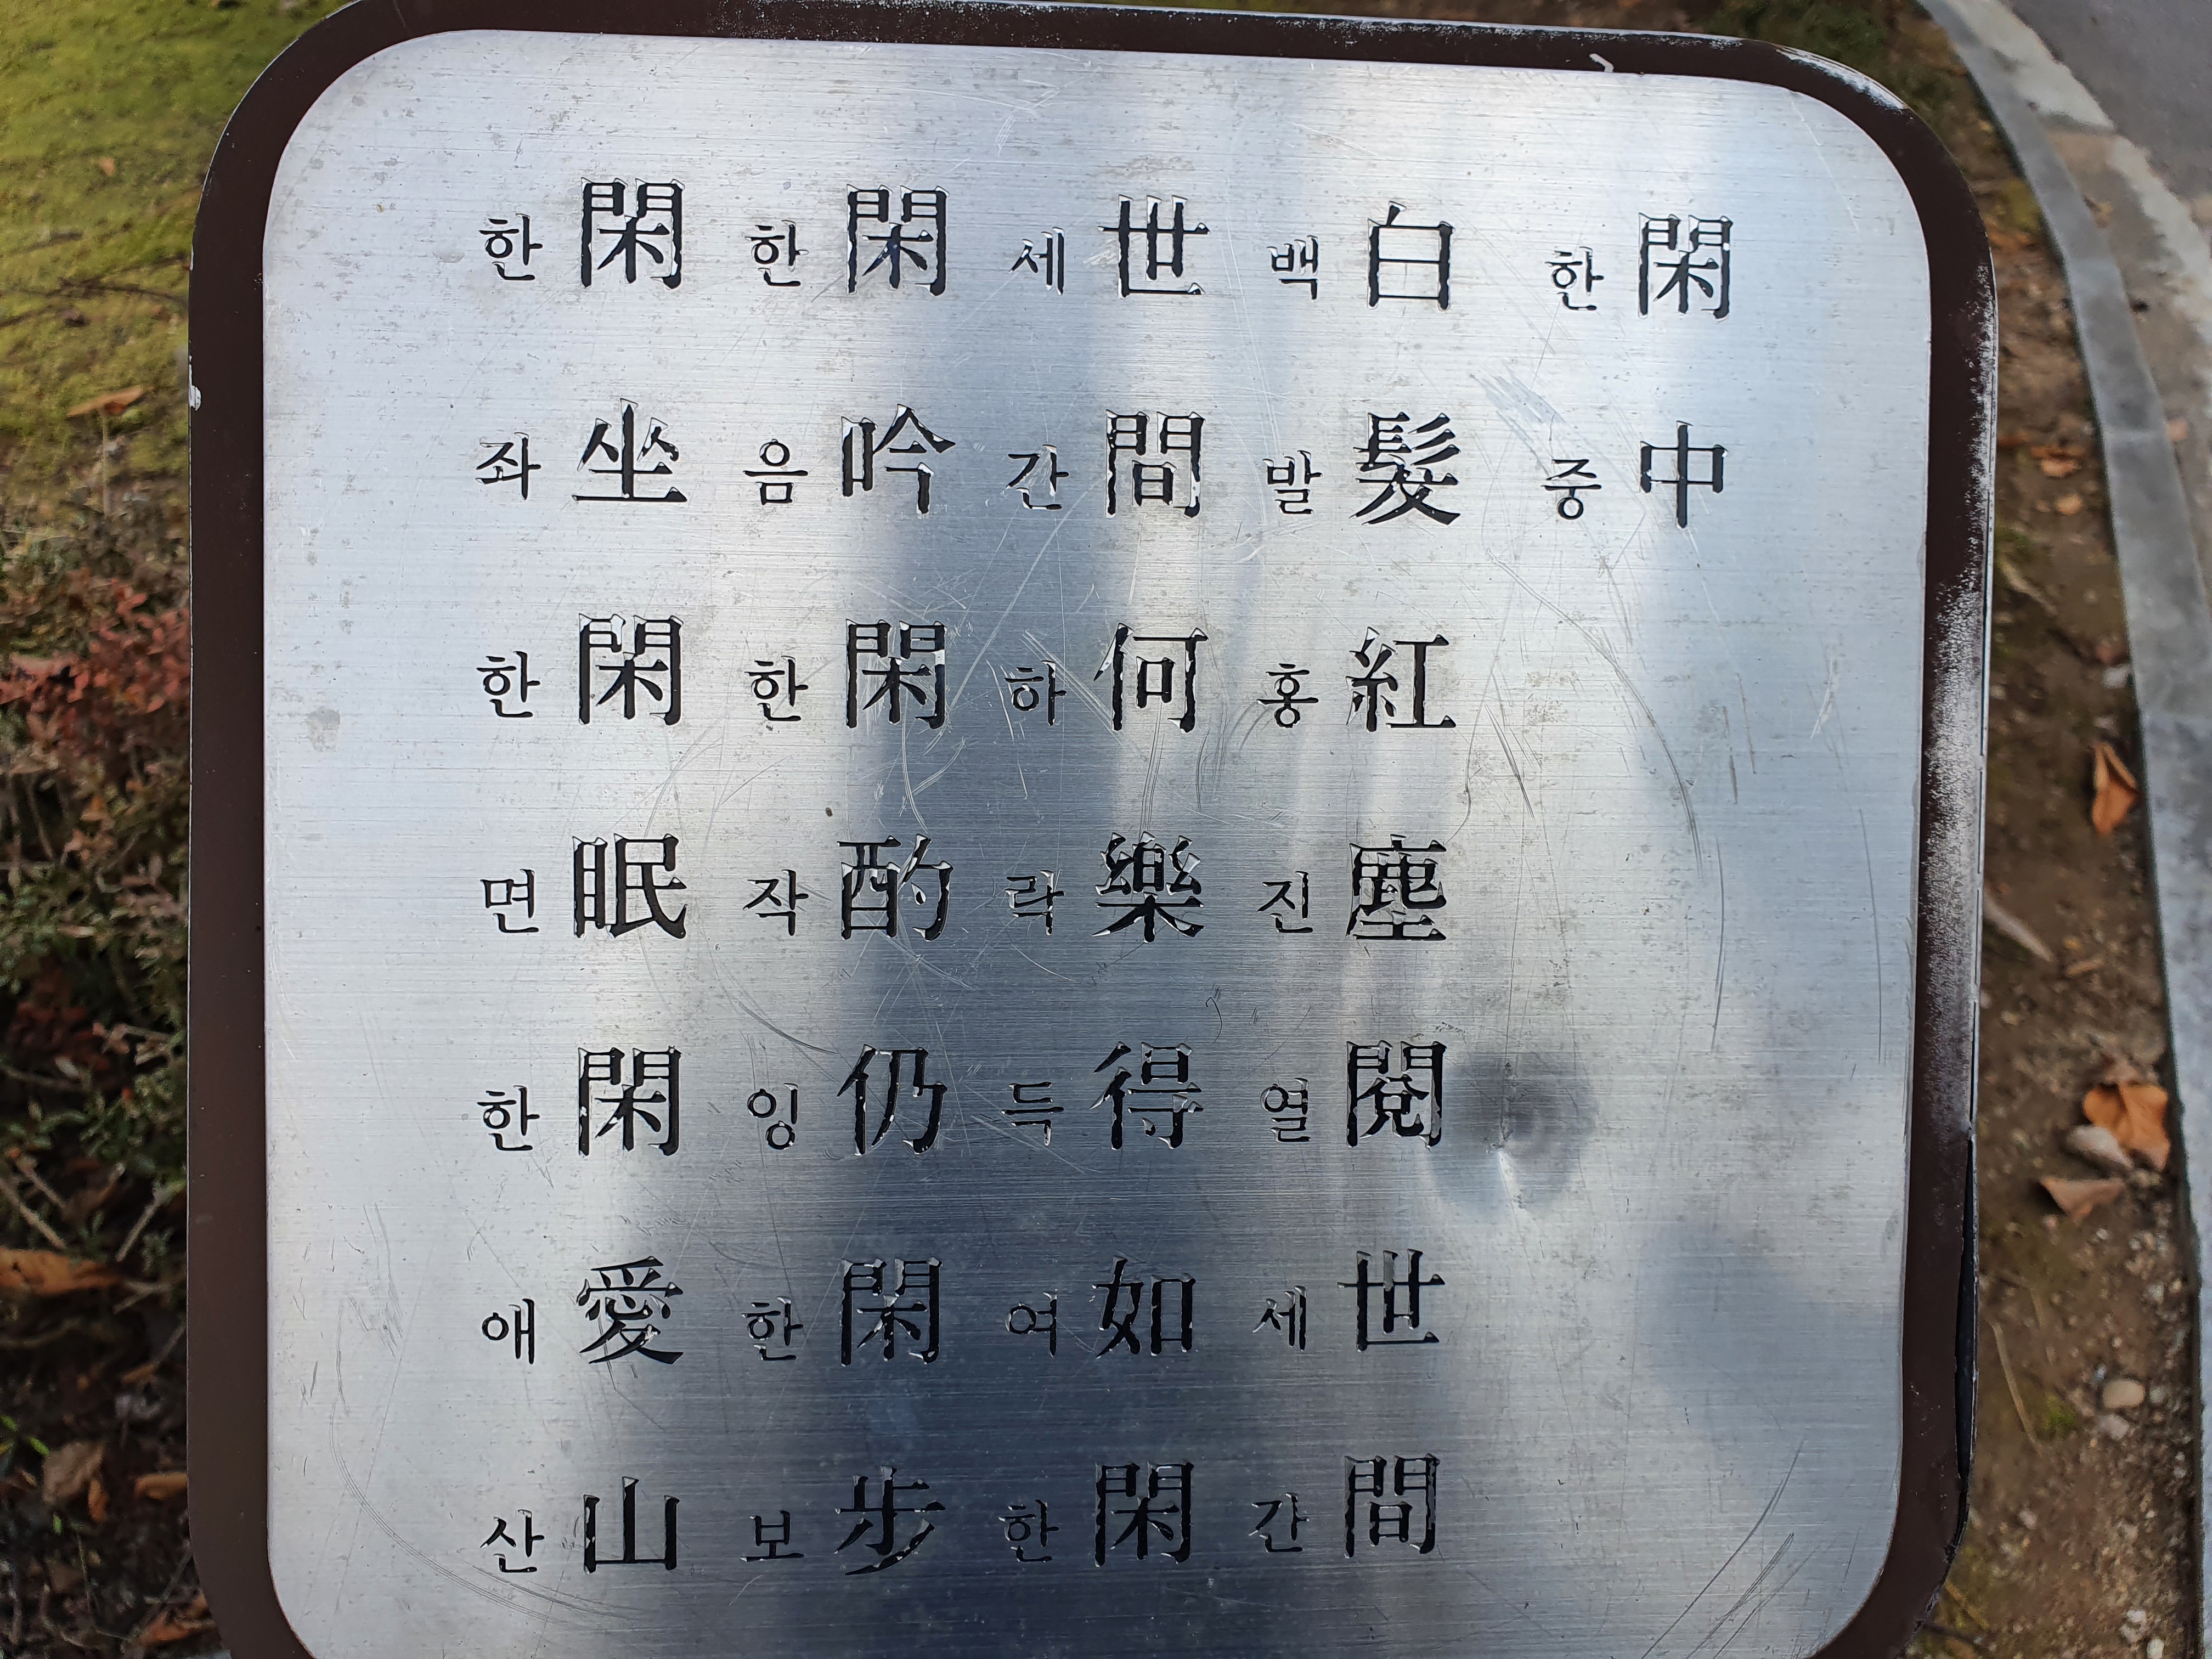 閑한中중
白백髮발紅홍塵진閱열世세間간
世세間간何하樂락得득如여閑한
閑한吟음閑한酌작仍잉閑한步보
閑한坐좌閑한眠면閑한愛애山산